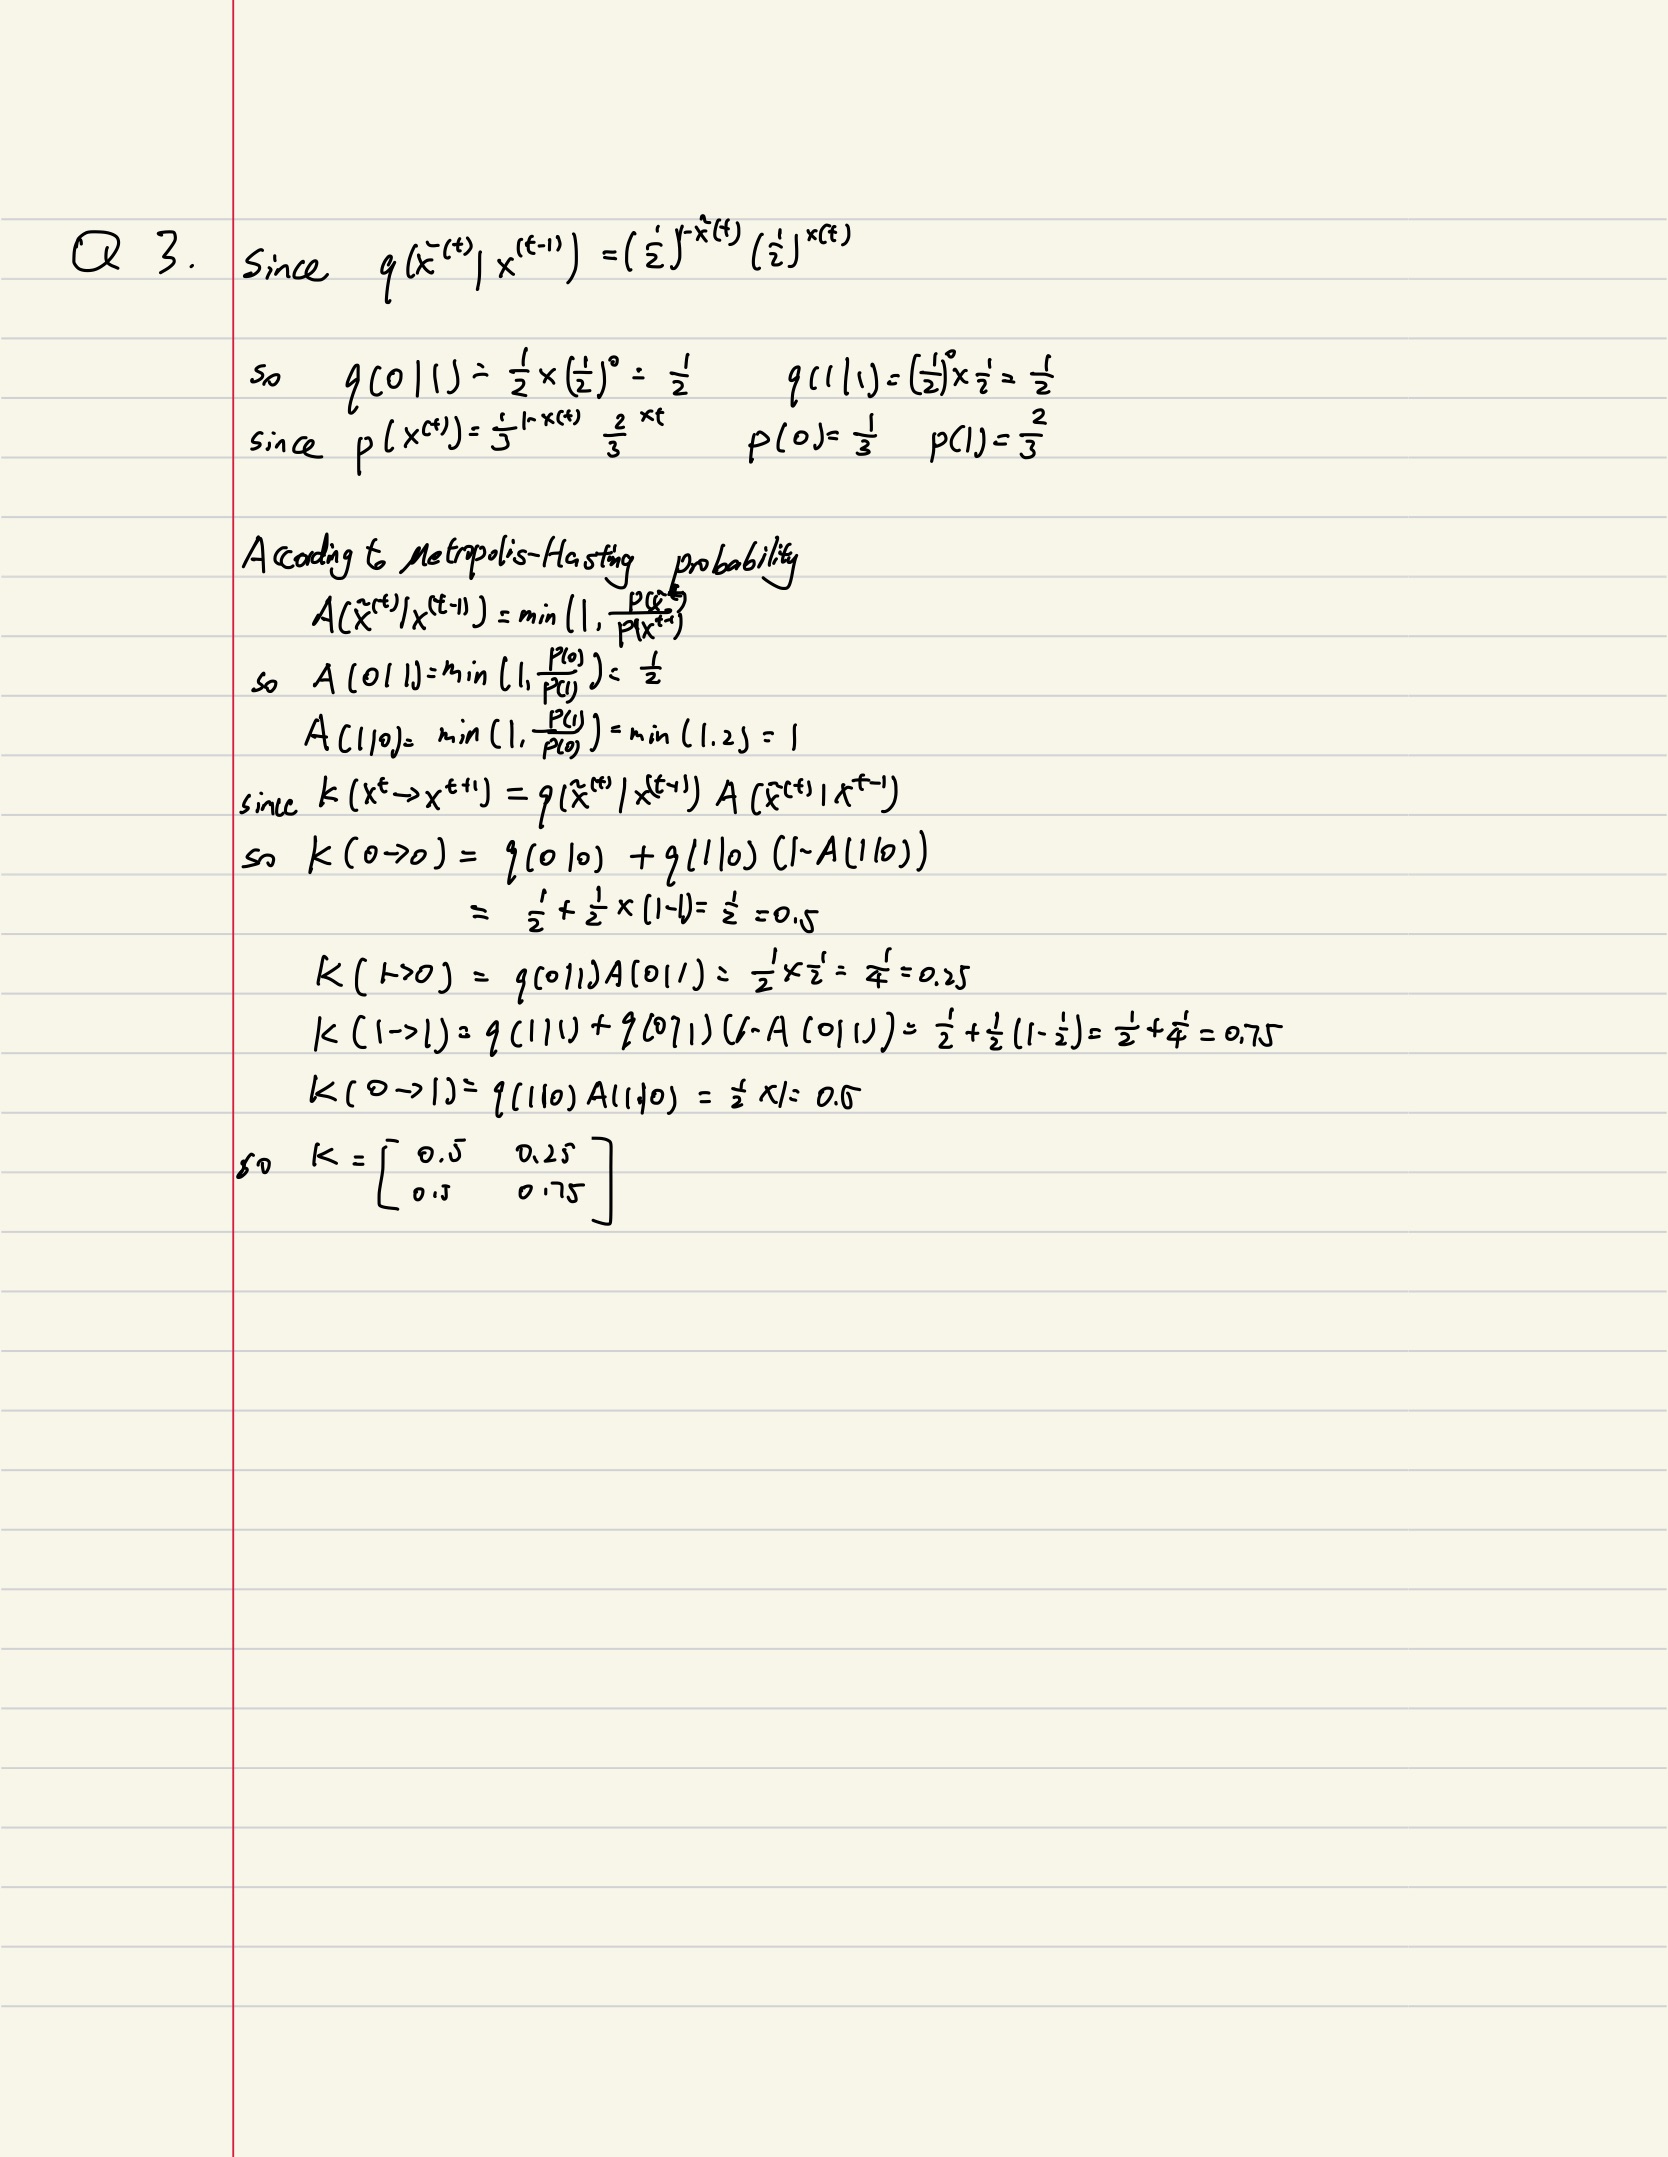 Q 3. Since q(x̃^(t) | x^(t-1)) = (1/2)^1-x̃(t) (1/2)^x(t)
so q(0|1) = 1/2 × (1/2)^0 = 1/2 q(1|1) = (1/2)^0 × 1/2 = 1/2
since p(x^(t)) = 1/3^1-x(t) 2/3^xt p(0) = 1/3 p(1) = 2/3
According to Metropolis-Hasting probability
A(x̃^(t)|x^(t-1)) = min(1, p(x̃^t)/p(x^t-1)
so A(0|1) = min(1, p(0)/p(1)) = 1/2
A(1|0) = min(1, p(1)/p(0)) = min(1.2) = 1
since K(x^t → x^t+1) = q(x̃^(t)|x^(t-1)) A(x̃^(t)|x^t-1)
so K(0→0) = q(0|0) + q(1|0) (1-A(1|0))
= 1/2 + 1/2 × (1-1) = 1/2 = 0.5
K(1→0) = q(0|1)A(0|1) = 1/2 × 1/2 = 1/4 = 0.25
K(1→1) = q(1|1) + q(0|1)(1-A(0|1)) = 1/2 + 1/2(1-1/2) = 1/2 + 1/4 = 0.75
K(0→1) = q(1|0) A(1|0) = 1/2 × 1 = 0.5
so K = [ 0.5 0.25
0.5 0.75 ]